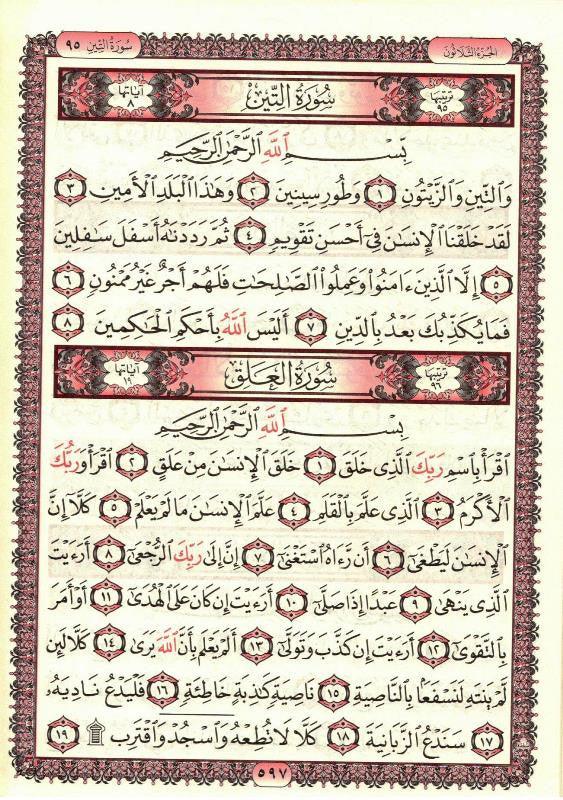 الجزء الثلاثون
سورة التين ٩٥
ترتيبها ٩٥ سُورَةُ التِّينِ آياتها ٨
بِسْمِ اللَّهِ الرَّحْمَٰنِ الرَّحِيمِ
وَالتِّينِ وَالزَّيْتُونِ ١ وَطُورِ سِينِينَ ٢ وَهَٰذَا الْبَلَدِ الْأَمِينِ ٣
لَقَدْ خَلَقْنَا الْإِنسَٰنَ فِي أَحْسَنِ تَقْوِيمٍ ٤ ثُمَّ رَدَدْنَٰهُ أَسْفَلَ سَٰفِلِينَ
٥ إِلَّا الَّذِينَ ءَامَنُوا وَعَمِلُوا الصَّٰلِحَٰتِ فَلَهُمْ أَجْرٌ غَيْرُ مَمْنُونٍ ٦
فَمَا يُكَذِّبُكَ بَعْدُ بِالدِّينِ ٧ أَلَيْسَ اللَّهُ بِأَحْكَمِ الْحَٰكِمِينَ ٨
ترتيبها ٩٦ سُورَةُ العَلَقِ آياتها ١٩
بِسْمِ اللَّهِ الرَّحْمَٰنِ الرَّحِيمِ
اقْرَأْ بِاسْمِ رَبِّكَ الَّذِي خَلَقَ ١ خَلَقَ الْإِنسَٰنَ مِنْ عَلَقٍ ٢ اقْرَأْ وَرَبُّكَ
الْأَكْرَمُ ٣ الَّذِي عَلَّمَ بِالْقَلَمِ ٤ عَلَّمَ الْإِنسَٰنَ مَا لَمْ يَعْلَمْ ٥ كَلَّا إِنَّ
الْإِنسَٰنَ لَيَطْغَىٰ ٦ أَن رَّءَاهُ اسْتَغْنَىٰ ٧ إِنَّ إِلَىٰ رَبِّكَ الرُّجْعَىٰ ٨ أَرَءَيْتَ
الَّذِي يَنْهَىٰ ٩ عَبْدًا إِذَا صَلَّىٰ ١٠ أَرَءَيْتَ إِن كَانَ عَلَى الْهُدَىٰ ١١ أَوْ أَمَرَ
بِالتَّقْوَىٰ ١٢ أَرَءَيْتَ إِن كَذَّبَ وَتَوَلَّىٰ ١٣ أَلَمْ يَعْلَم بِأَنَّ اللَّهَ يَرَىٰ ١٤ كَلَّا لَئِن
لَّمْ يَنتَهِ لَنَسْفَعًا بِالنَّاصِيَةِ ١٥ نَاصِيَةٍ كَٰذِبَةٍ خَاطِئَةٍ ١٦ فَلْيَدْعُ نَادِيَهُۥ
١٧ سَنَدْعُ الزَّبَانِيَةَ ١٨ كَلَّا لَا تُطِعْهُ وَاسْجُدْ وَاقْتَرِب ۩ ١٩
٥٩٧